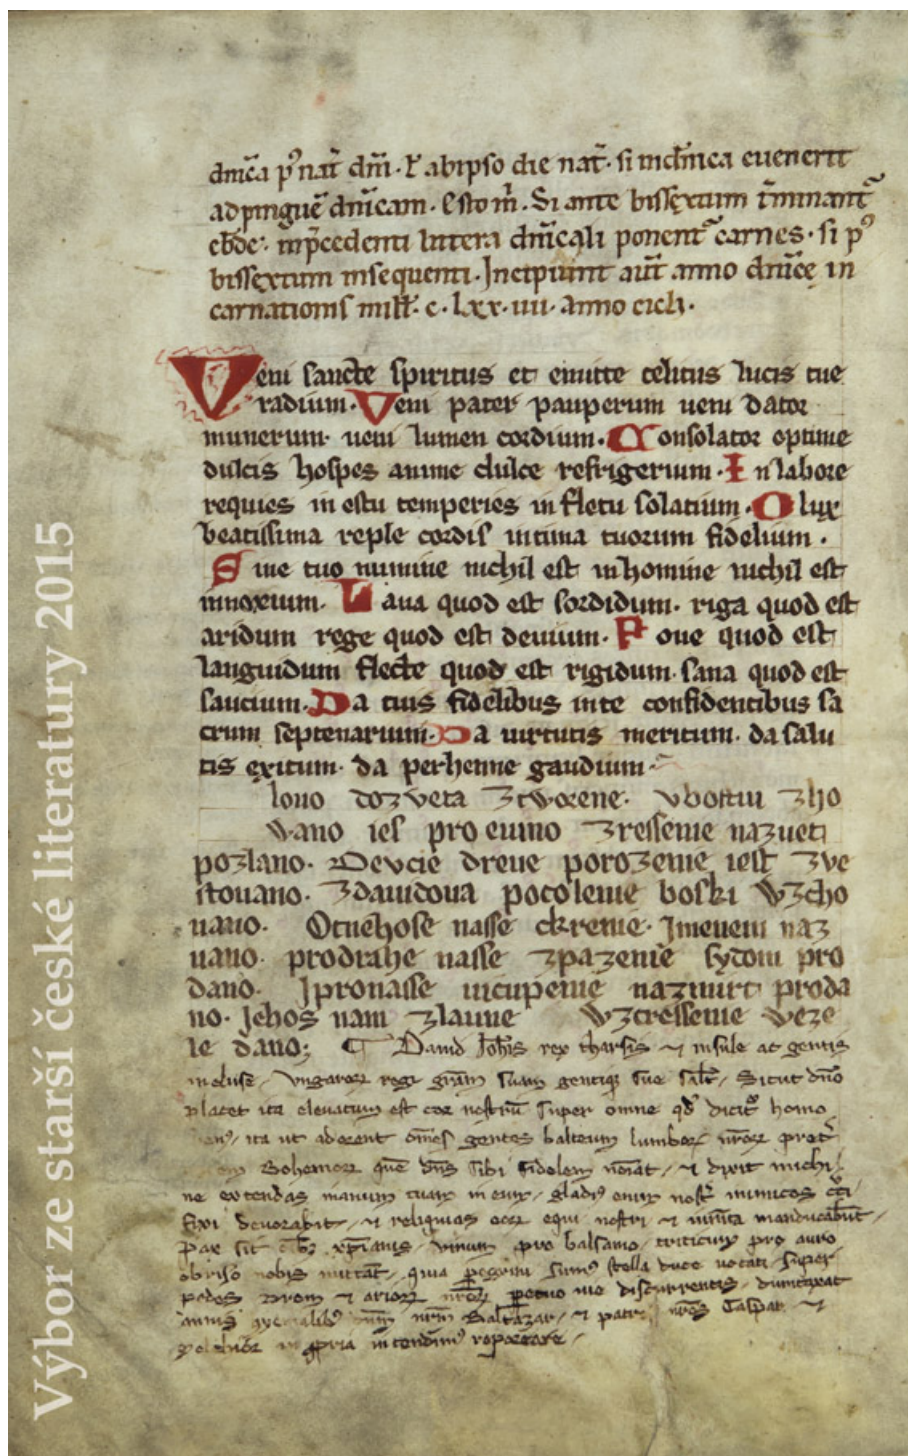 dnica p' nat dm. Et ab ipso die nat. si in dnica euenerit
ad pinguē dnicam. Esto m. Si ante bissextum tminant
ebde. in pcedenti littera dnicali ponent carnes. si p'
bissextum insequenti. Incipiunt aut anno dnice in
carnationis mill. c. lxx. iiii. anno cicli.
Veni sancte spiritus et emitte celitus lucis tue
radium. Veni pater pauperum ueni dator
munerum. ueni lumen cordium. Consolator optime
dulcis hospes anime dulce refrigerium. In labore
requies in estu temperies in fletu solatium. O lux
beatissima reple cordis intima tuorum fidelium.
Sine tuo numine nichil est in homine nichil est
innoxium. Laua quod est sordidum. riga quod est
aridum rege quod est deuium. Foue quod est
languidum flecte quod est rigidum. sana quod est
saucium. Da tuis fidelibus in te confidentibus sa
crum septenarium. Da uirtutis meritum. da salu
tis exitum. da perhenne gaudium.
louo dozveta ztworene. vbostui zho
wano ies pro euino zressenie nazueti
pozlano. Devcie dreue porozenie iest zve
stouano. zdauidoua pocolenie boski wzcho
uano. Otnehose nasse ckrenie. Imeuem naz
uano. prodrahe nasse zpazenie sydom pro
dano. Ipronasse uicupenie nazmirt proda
no. Jehos nam zlaune wzcressenie veze
le dano; David Johis rex tharsis et insule ac gentis
incluse. Vngarorum regi gram suam gentique sue salt. Sicut dno
placet ita elevatum est cor nostrū super omne qd dicit homo
ita ut adorent omēs gentes balteum lumbor nror pret
Bohemor quē dns sibi fidelem noiat. et dixit michi
ne extendas manum tuam in eum. gladi' enim nostr inimicos
fixi devorabit. et reliquias eor equi nostri et iumta manducabunt.
Pax sit xpianis. vinum pro balsamo. triticum pro auro
obriso nobis mittat. quia pegrini sum' stella duce vocati. super
pades et arior nror discurrentis.
Baltazar. et patr nros Caspar. et
in ppria intendim' reportare.
Výbor ze starší české literatury 2015